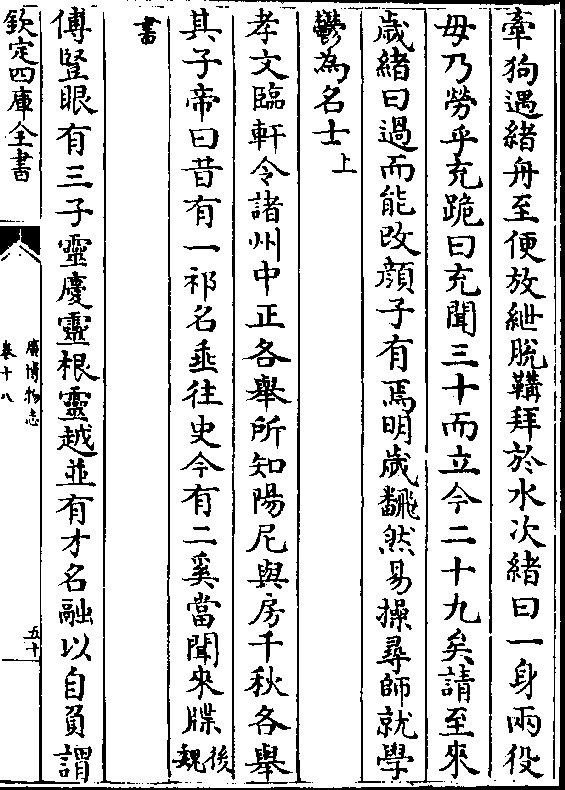 牽狗遇緒舟至便放紲脫鞲拜於水次緒曰一身兩役
毋乃勞乎充跪曰充聞三十而立今二十九矣請至來
歲緒曰過而能改顔子有焉明歲飜然易操尋師就學
鬱為名士上
孝文臨軒令諸州中正各舉所知陽尼與房千秋各舉
其子帝曰昔有一祁名垂往史今有二奚當聞來牒後魏
書
傅豎眼有三子靈慶靈根靈越並有才名融以自負謂
欽定四庫全書
廣博物志
卷十八
五十